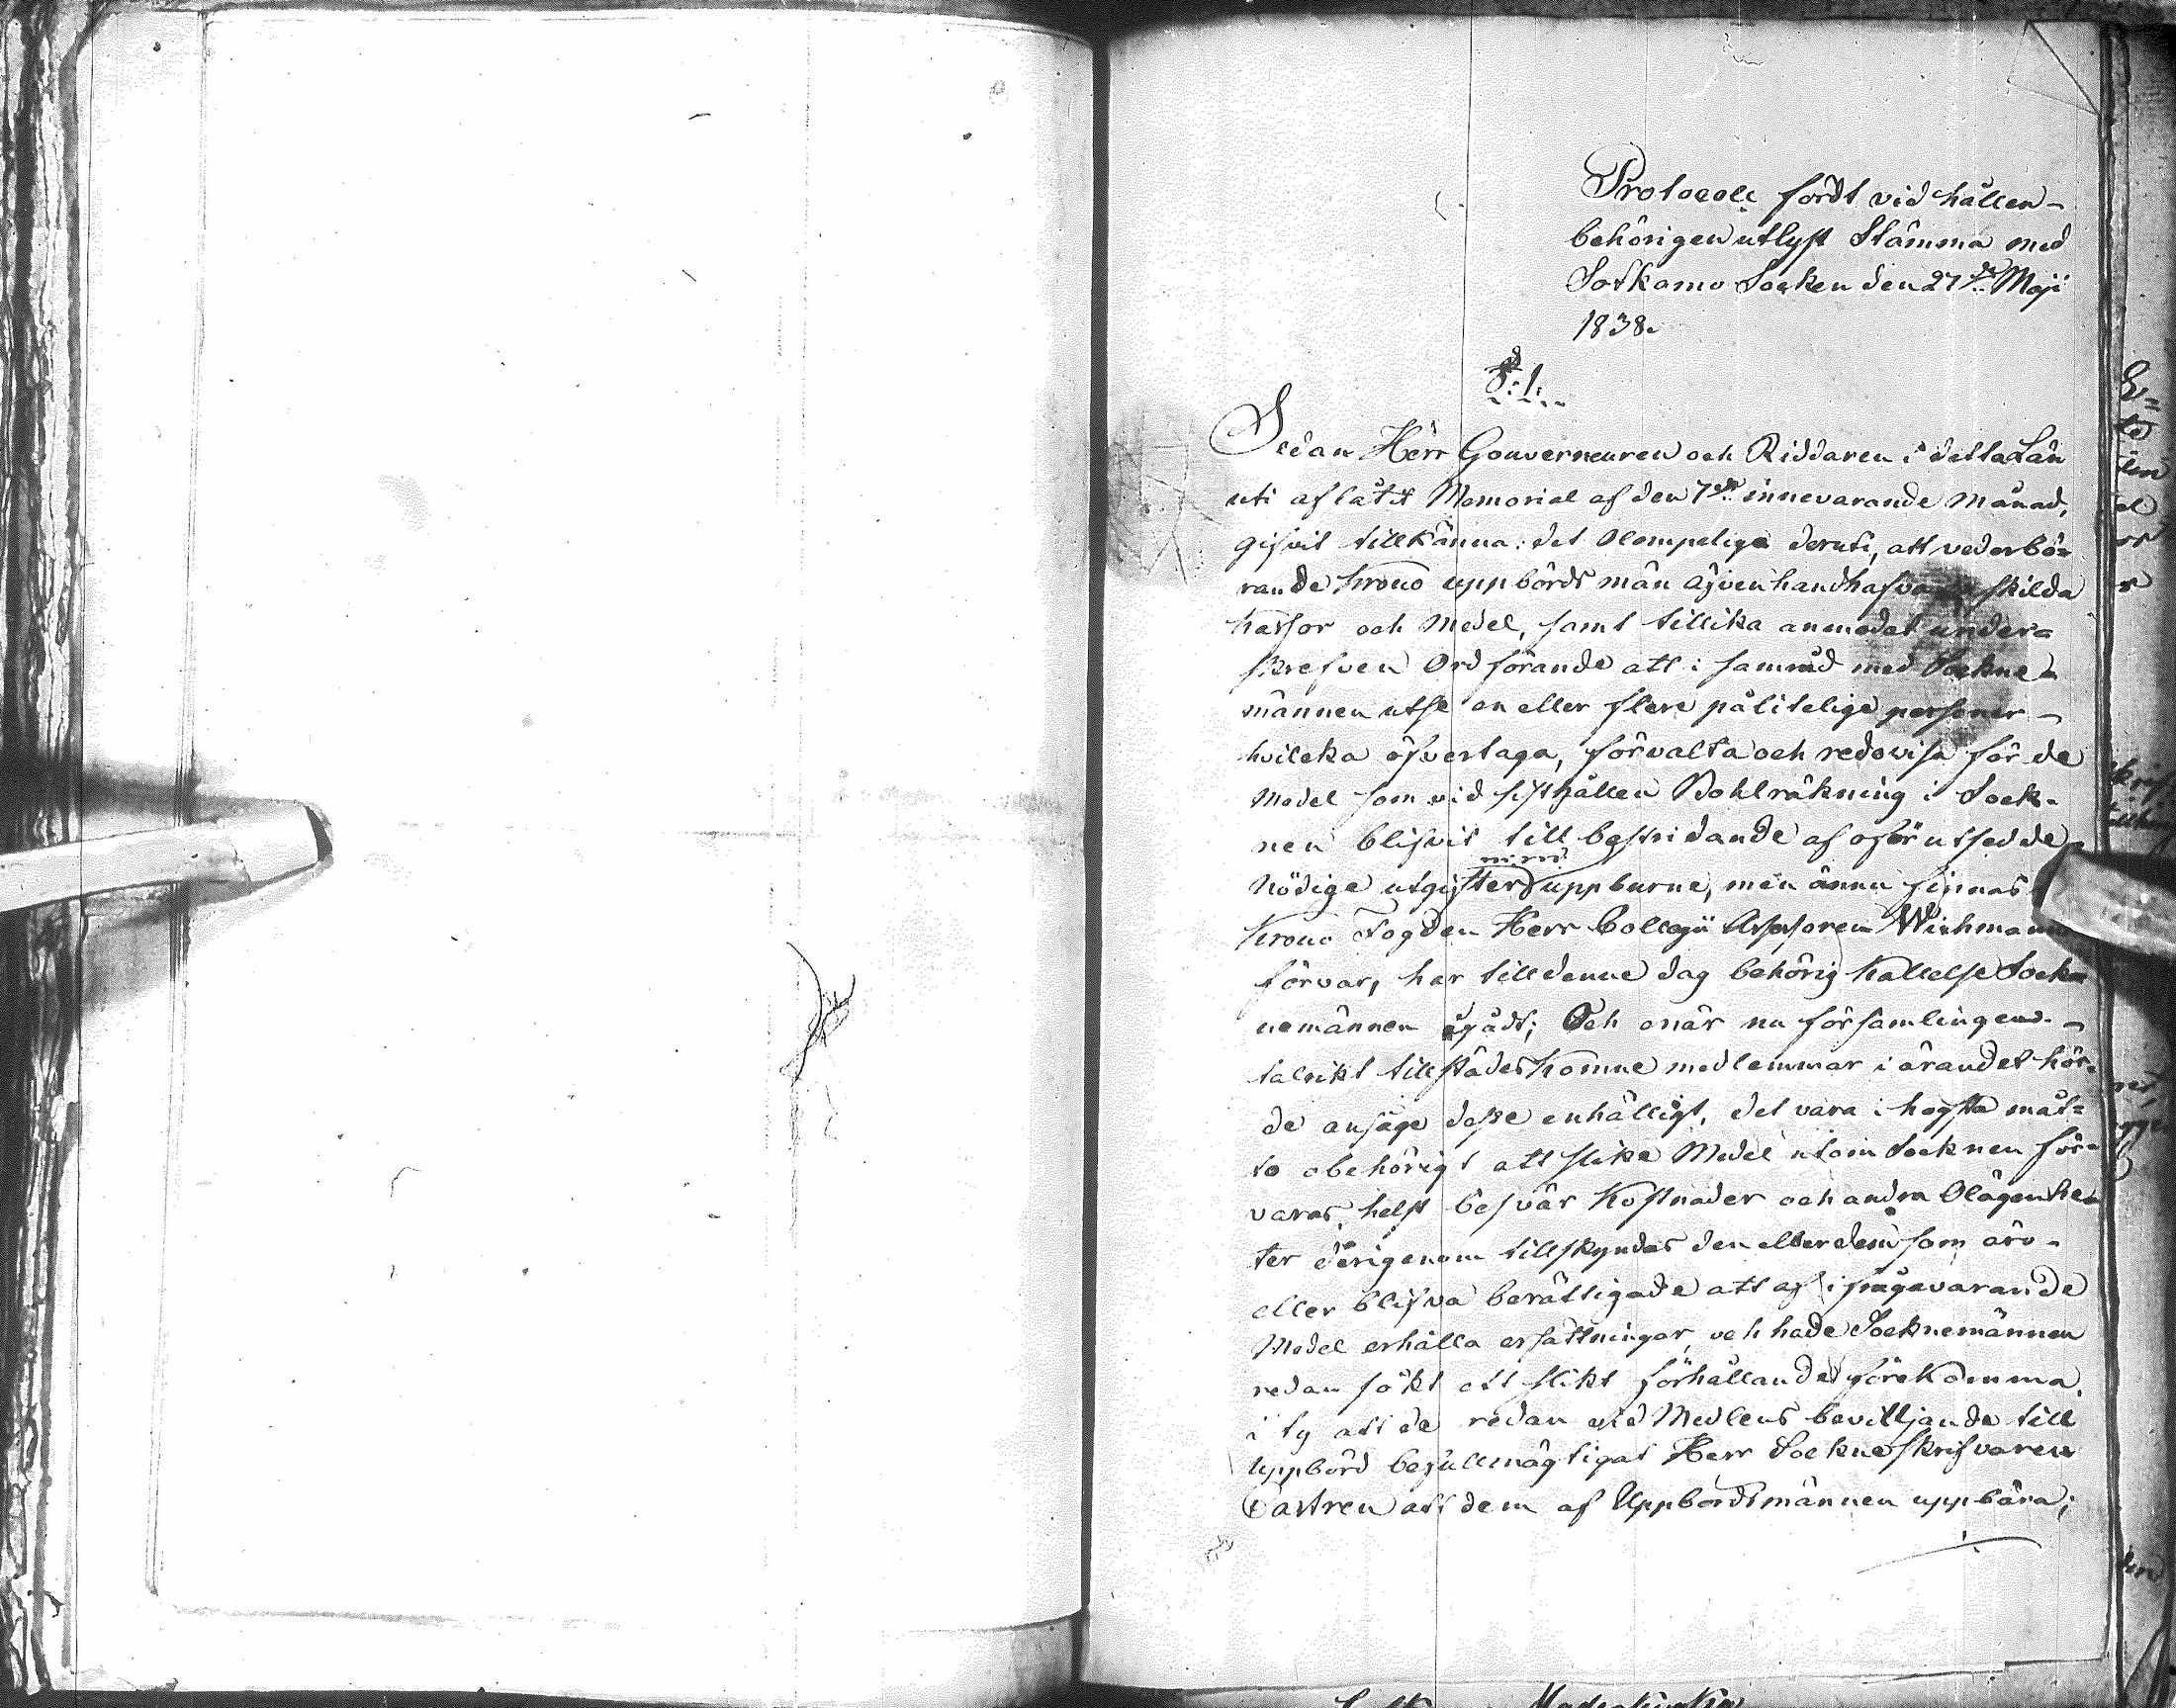 Protocoll fördt vid hållen
behörigen utlyst Stämma med
Sotkamo Socken den 27de Maji
1838.
§: 1.
Sedan Herr Gouverneuren och Riddaren i detta Län
uti aflåtit Memorial af den 7de innevarande Månad,
gifvit tillkänna: det Olämpeliga deruti, att vederbö=
rande Krono uppbördsmän äfven handhafva skilda
Kassor och Medel, samt tillika anmodat under=
skrefven Ordförande att i samråd med Sockne-
männen utse en eller flere pålitelige personer
hvilcka öfvertaga, förvalta och redovisa för de
Medel som vid sisthållen Bohlräkning i Sock-
nen blifvit till bestridande af oförutsedde
Nödige utgifter uppburne, men ännu finnas
Krono Fogden Herr Collegii Assessoren Wichmann
förvar, har till denne dag behörig Kallelse Sock
nemännen ågådt; Och enär nu församlingens
talrikt tillstädes Komne medlemmar i ärandet hör-
de ansåge desse enhälligt, det vara i högsta måt=
to obehörigt att slike Medel utom Socknen för-
varas, helst besvär Kostnader och andra Olägenhe-
ter derigenom tillskyndas den eller dem som äro
eller blifva berättigade att af ifrågavarande
Medel erhålla ersättningar, och hade Socknemännen
redan sökt att slikt förhållande förekomma,
i ty att de redan vid Medlens bevilljande till
Uppbörd befullmägtigat Herr Sockneskrifvaren
Castren att dem af Uppbördsmännen uppbära;